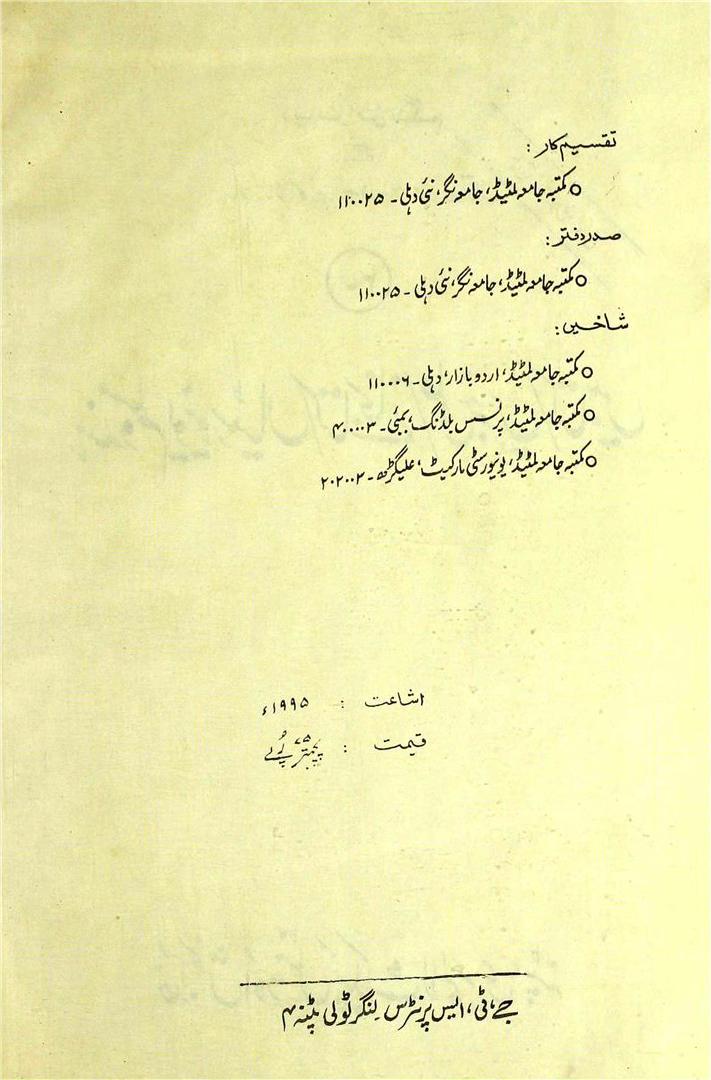 تقسیم کار :
○ مکتبہ جامعہ لمٹیڈ، جامعہ نگر، نئی دہلی ۔ ۱۱۰۰۲۵
صدر دفتر :
○ مکتبہ جامعہ لمٹیڈ، جامعہ نگر، نئی دہلی ۔ ۱۱۰۰۲۵
شاخیں :
○ مکتبہ جامعہ لمٹیڈ، اردو بازار، دہلی ۔ ۱۱۰۰۰۶
○ مکتبہ جامعہ لمٹیڈ، پرنسس بلڈنگ، بمبئی ۔ ۴۰۰۰۰۳
○ مکتبہ جامعہ لمٹیڈ، یونیورسٹی مارکیٹ، علیگڑھ ۔ ۲۰۲۰۰۲
اشاعت : ۱۹۹۵ء
قیمت : پچھتر ۷۵ رُپے
جے، ٹی، ایس پرنٹرس لنگر ٹولی پٹنہ ۴